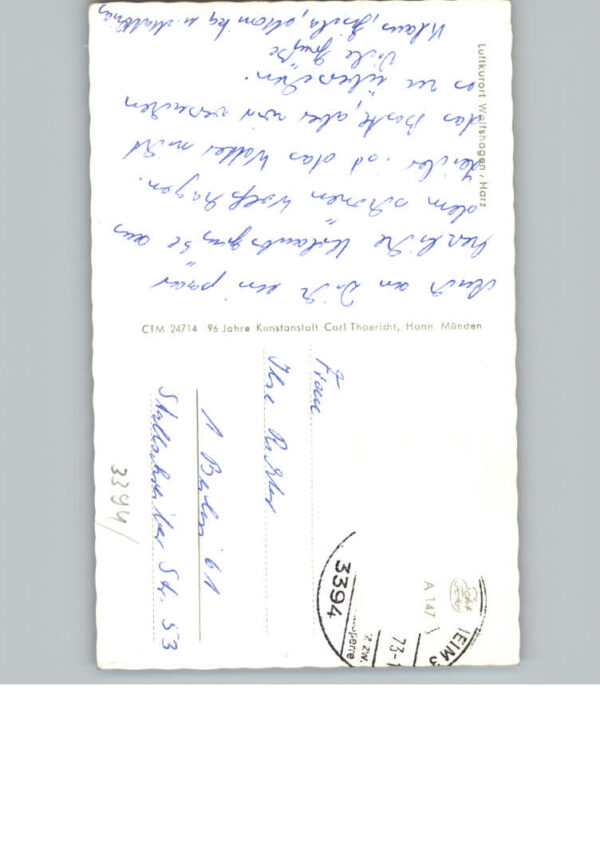 Luftkurort Wolfshagen / Harz
Auch an Dich ein paar
herzliche Urlaubsgrüße aus
dem schönen Wolfshagen.
Leider ist das Wetter nicht
das Beste, aber wir versuchen
es zu übersehen.
Viele Grüße
Klaus,
CTM 24714 96 Jahre Kunstanstalt Carl Thoericht, Hann. Münden
Frau
Ilse Richter
1 Berlin 61
Stallschreiber Str. 53
3394/
3394
A 147
73-1
z. zw.